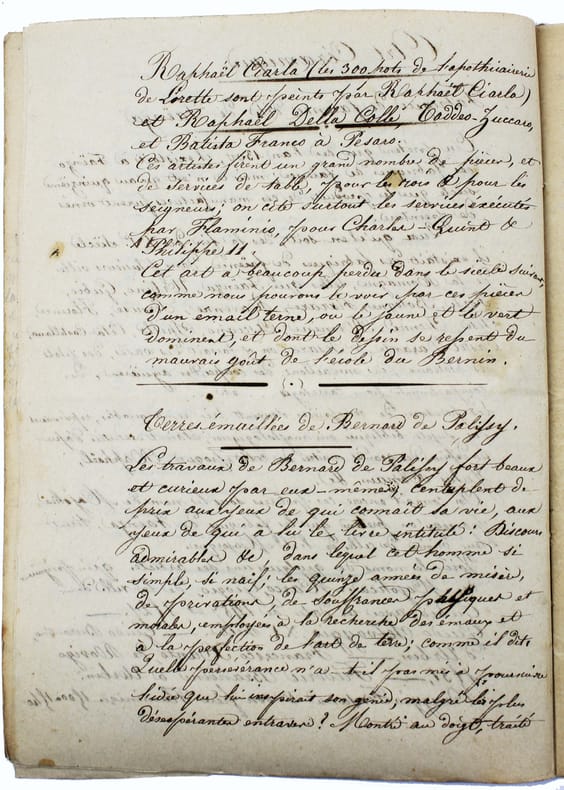 Raphaël Ciarla (les 300 pots de l'apothicairerie
de Lorette sont peints par Raphaël Ciarla)
et Raphaël Della Colle, Taddeo Zuccaro,
et Batista Franco à Pesaro.
Ces artistes firent un grand nombre de pièces, et
de services de table, pour les rois & pour les
seigneurs; on cite surtout les services exécutés
par Flaminio, pour Charles-Quint &
Philippe II.
Cet art a beaucoup perdu dans le siècle suivant,
comme nous pourons le voir par ces pièces
d'un émail terne, ou le jaune et le vert
dominent, et dont le dessin se ressent du
mauvais goût de l'école du Bernin.
Terres émaillées de Bernard de Palissy.
Les travaux de Bernard de Palissy fort beaux
et curieux par eux-mêmes, centuplent de
prix aux yeux de qui connait sa vie, aux
yeux de qui a lu le livre intitulé: Discours
admirables &c dans lequel cet homme si
simple, si naïf; les quinze années de misère,
de privations, de souffrances physiques et
morales, employées à la recherche des émaux et
à la perfection de l'art de terre; comme il dit.
Quelle persévérance n'a-t-il pas mis à poursuivre
l'idée que lui inspirait son génie, malgré les plus
désespérantes entraves? Montré au doigt, traité